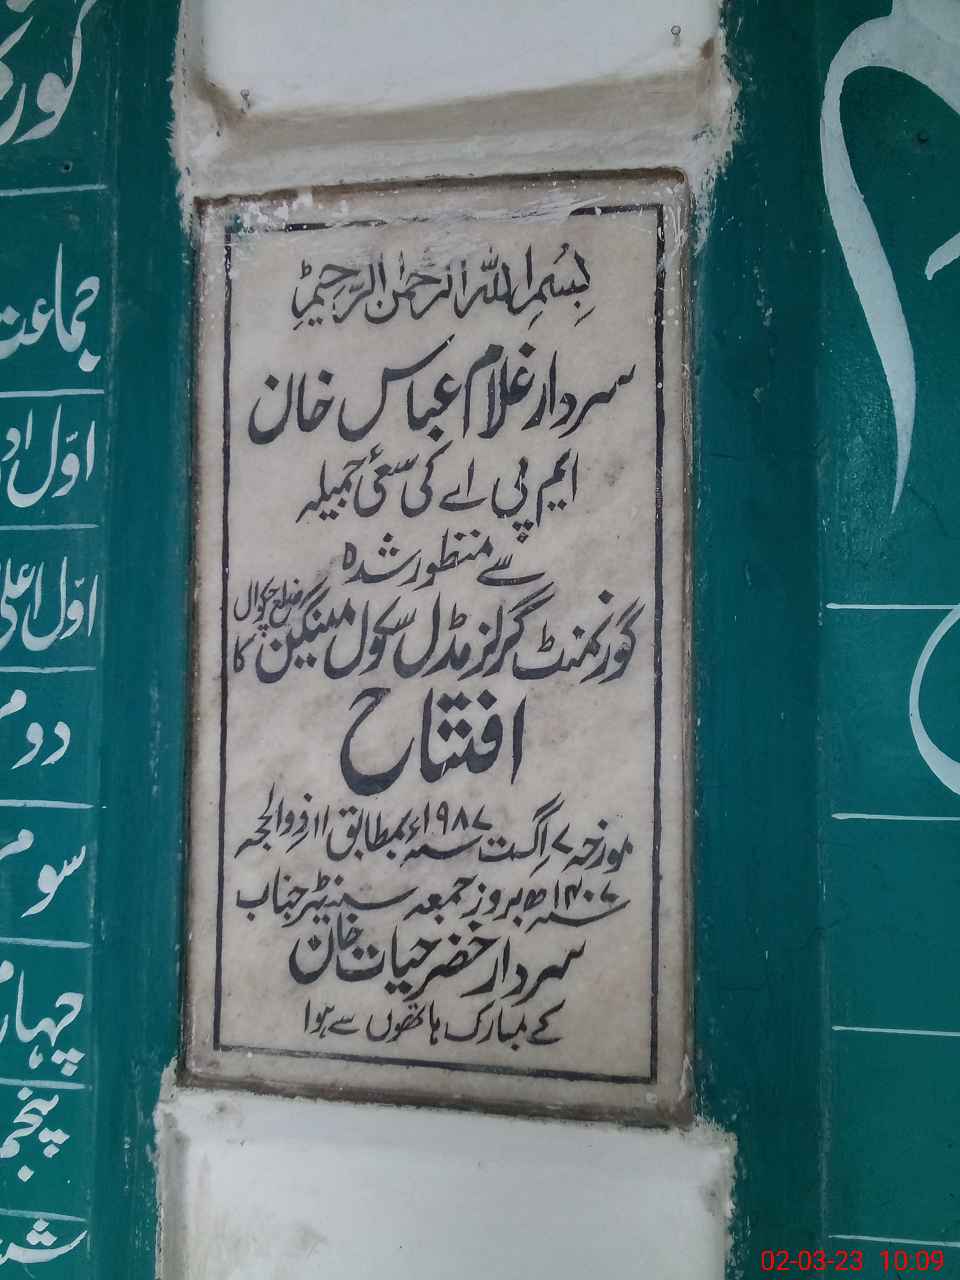 بِسْمِ اللہ الرحمٰن الرَّحِیمِ
سردار غلام عباس خان
ایم پی اے کی سعئ جمیلہ
سے منظور شدہ
گورنمنٹ گرلز مڈل سکول مینگین ضلع چکوال کا
افتتاح
مورخہ ۷ اگست سنہ ۱۹۸۷ء بمطابق ۱۱ ذوالحجہ
سنہ ۱۴۰۷ھ بروز جمعہ سنیٹر جناب
سردار خضر حیات خان
کے مبارک ہاتھوں سے ہوا
جماعت
اوّل
اوّل اعلیٰ
دوم
سوم
چہارم
پنجم
02-03-23 10:09